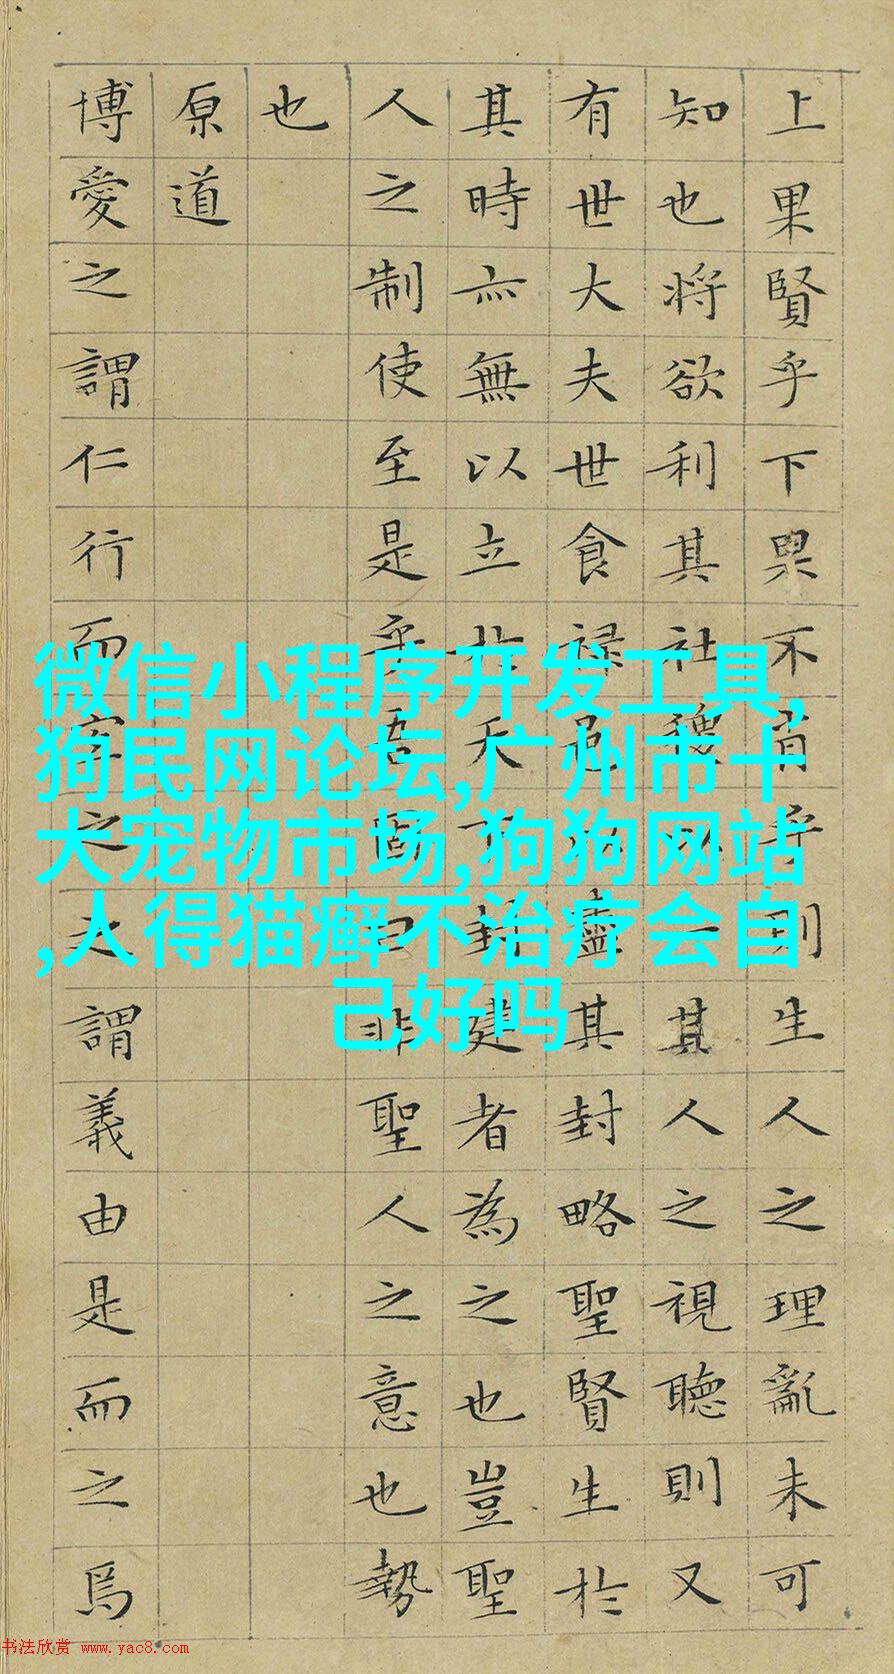 上果賢乎下果不肖乎則生人之理亂未可
知也將欲利其社稷以一其人之視聽則又
有世大夫世食祿邑以盡其封略聖賢生於
其時亦無以立於天下封建者為之也豈聖
人之制使至是乎吾固曰非聖人之意也勢
也
原道
博愛之謂仁行而宜之之謂義由是而之焉
微信小程序开发工具,
狗民网论坛,广州市十
大宠物市场,狗狗网站
,人得猫癣不治疗会自
己好吗
书法欣赏 www.yac8.com